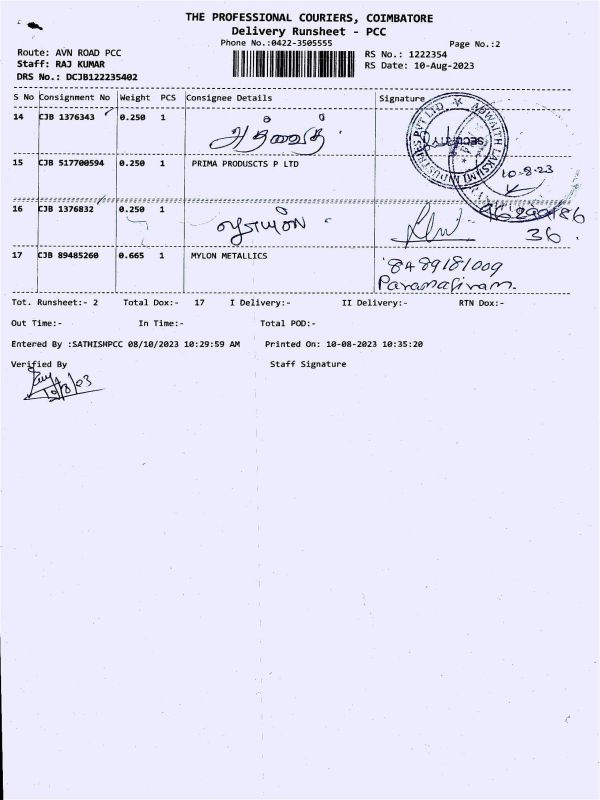 THE PROFESSIONAL COURIERS, COIMBATORE
Delivery Runsheet - PCC
Phone No.:0422-3505555
Page No.:2
Route: AVN ROAD PCC
RS No.: 1222354
Staff: RAJ KUMAR
RS Date: 10-Aug-2023
DRS No.: DCJB122235402
S No Consignment No Weight PCS Consignee Details Signature
14 CJB 1376343 0.250 1
ADWAITH LAKSHMI INDUSTRIES PVT LTD
SECURITY
15 CJB 517700594 0.250 1 PRIMA PRODUSCTS P LTD
10-8-23
16 CJB 1376832 0.250 1
36
17 CJB 89485260 0.665 1 MYLON METALLICS 8489181009
Paramasivam.
Tot. Runsheet:- 2 Total Dox:- 17 I Delivery:- II Delivery:- RTN Dox:-
Out Time:- In Time:- Total POD:-
Entered By :SATHISHPCC 08/10/2023 10:29:59 AM Printed On: 10-08-2023 10:35:20
Verified By Staff Signature